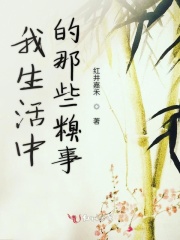 我生活中
的那些糗事
红井嘉禾
◎
著